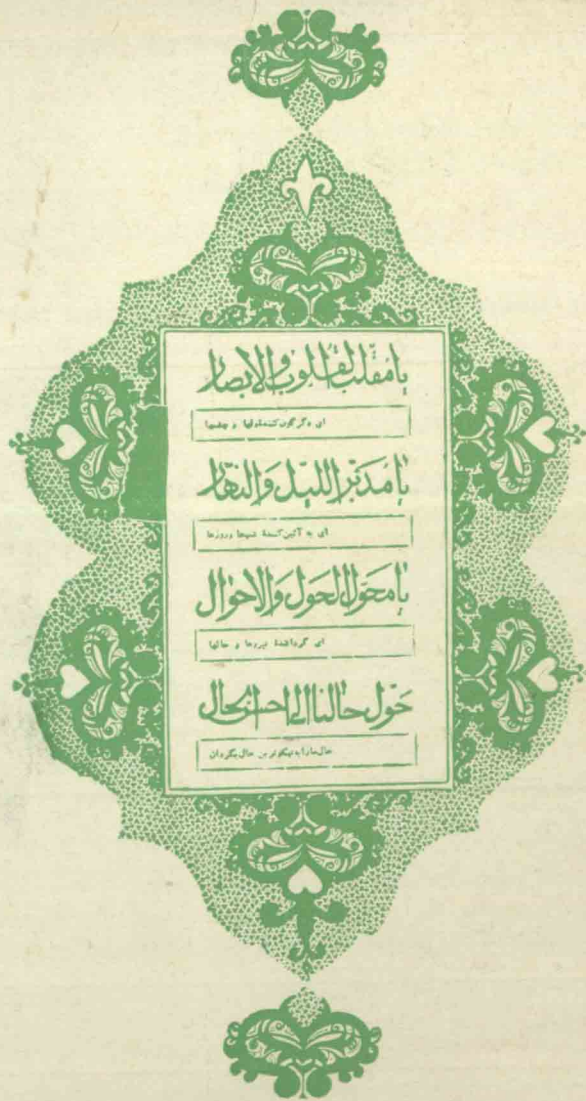 يا مُقَلِّبَ القُلُوبِ وَالأَبصار
ای دگرگون کننده دلها و چشمها
يا مُدَبِّرَ اللَّيلِ وَالنَّهار
ای به آئین کنندهٔ شبها و روزها
يا مُحَوِّلَ الحَولِ وَالأَحوال
ای گردانندهٔ نیروها و حالها
حَوِّل حالَنا إلى أحسَنِ الحال
حال ما را به نیکوترین حال بگردان